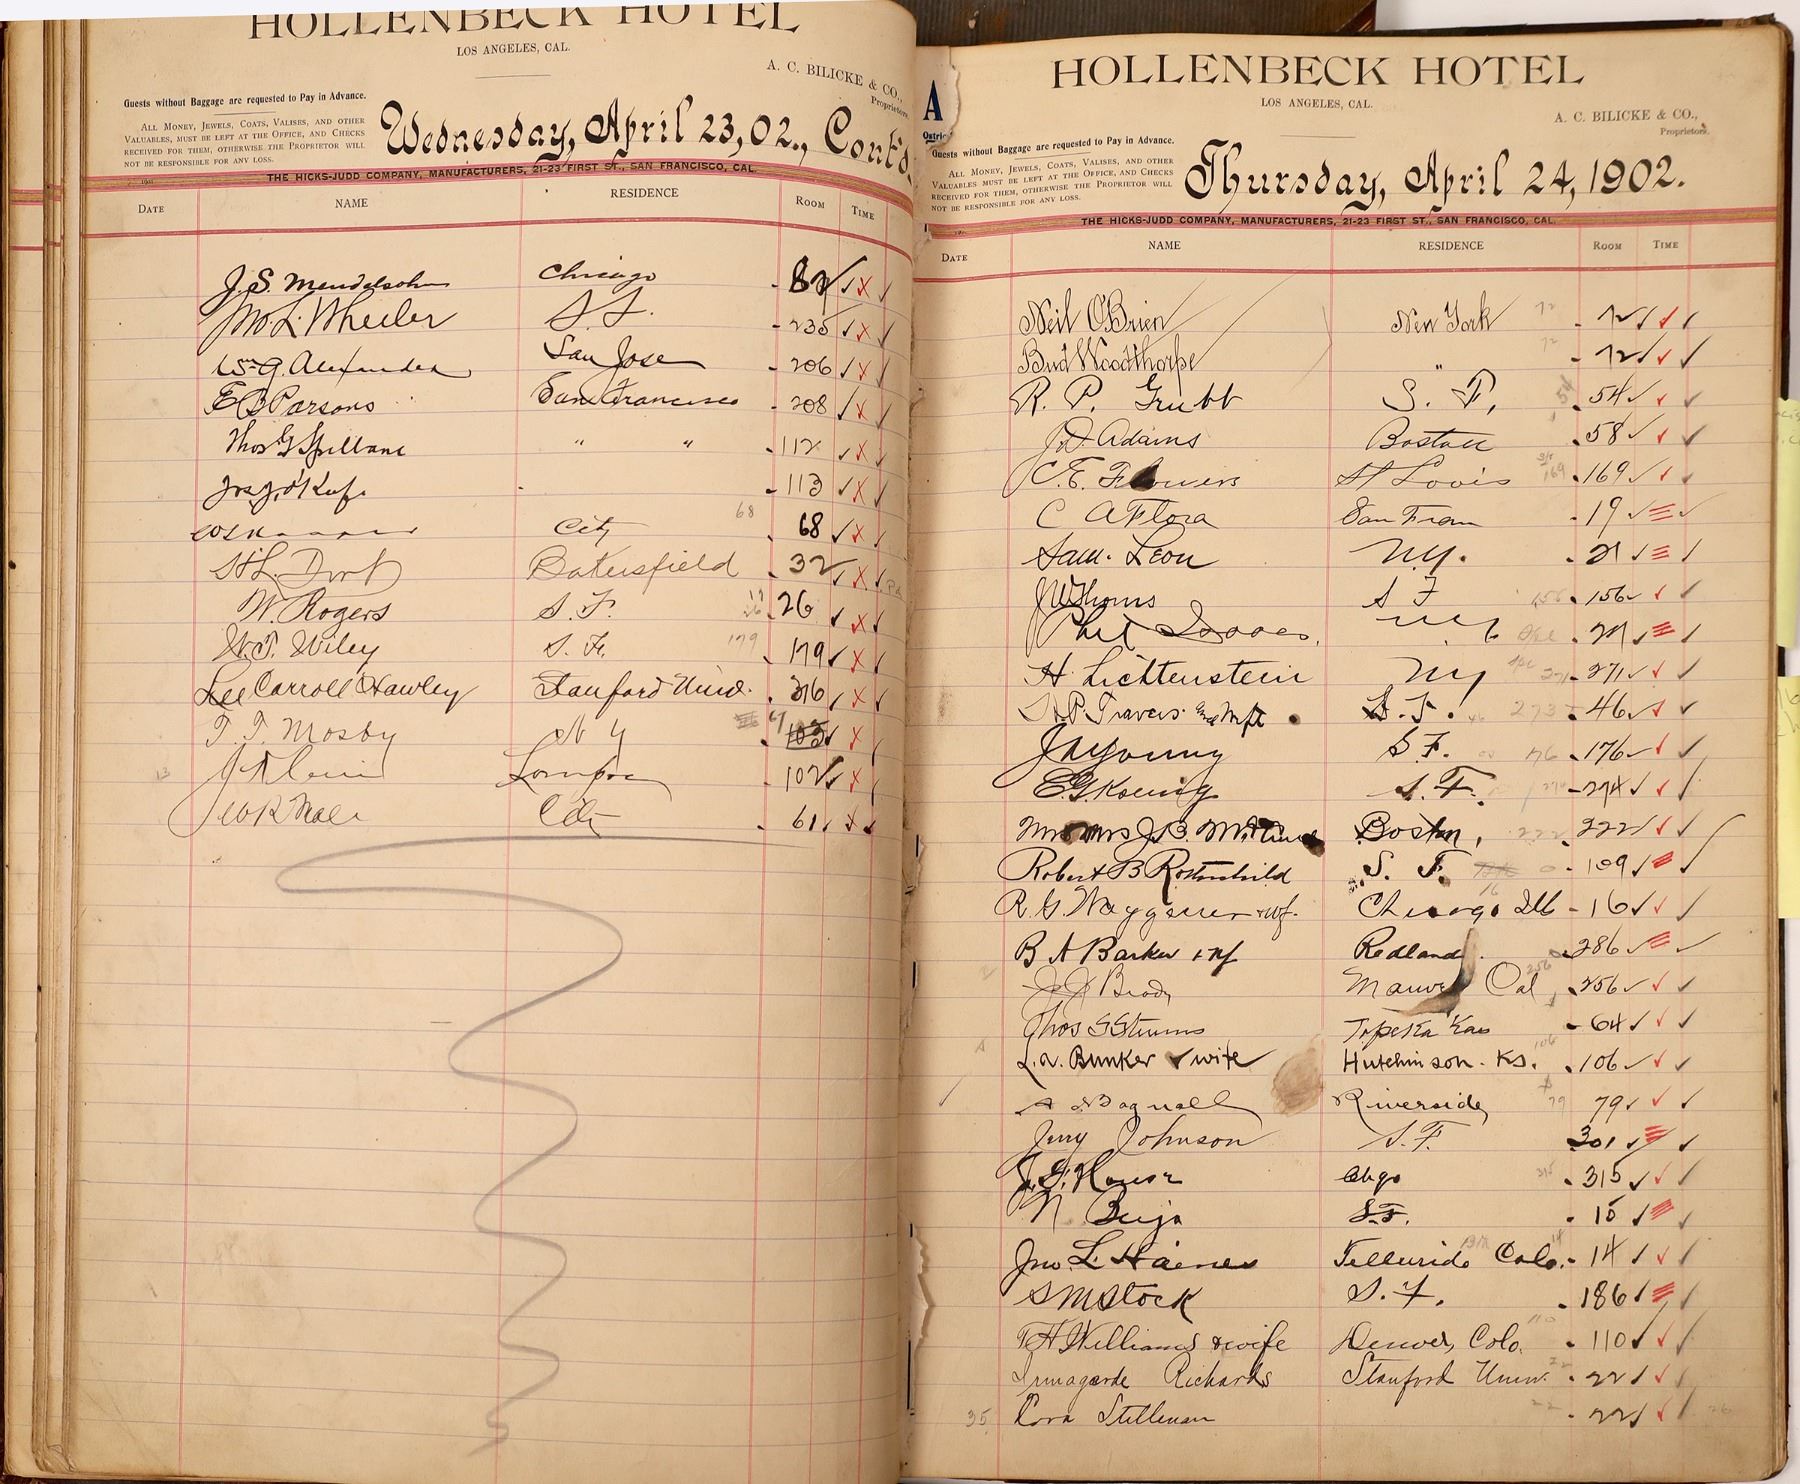 HOLLENBECK HOTEL
LOS ANGELES, CAL.
A. C. BILICKE & CO.,
Proprietors.
Guests without Baggage are requested to Pay in Advance.
ALL MONEY, JEWELS, COATS, VALISES, AND OTHER
VALUABLES, MUST BE LEFT AT THE OFFICE, AND CHECKS
RECEIVED FOR THEM, OTHERWISE THE PROPRIETOR WILL
NOT BE RESPONSIBLE FOR ANY LOSS.
Wednesday, April 23, 02., Cont'd.
THE HICKS-JUDD COMPANY, MANUFACTURERS, 21-23 FIRST ST., SAN FRANCISCO, CAL.
DATE NAME RESIDENCE ROOM TIME
J. S. Mendelsohn Chicago 82
Jno. L. Wheeler S. F. 235
Wm G. Alexander San Jose 206
E B Parsons San Francisco 208
Thos G Spillane " " 112
113
City 68 68
Bakersfield 32
W. Rogers S. F. 26
W. T. Wiley S. F. 179 179
Lee Carroll Hawley Stanford Univ. 216
T. T. Mosby N Y 67 103
Lompoc 102
City 61
HOLLENBECK HOTEL
LOS ANGELES, CAL.
A. C. BILICKE & CO.,
Proprietors.
Guests without Baggage are requested to Pay in Advance.
ALL MONEY, JEWELS, COATS, VALISES, AND OTHER
VALUABLES MUST BE LEFT AT THE OFFICE, AND CHECKS
RECEIVED FOR THEM, OTHERWISE THE PROPRIETOR WILL
NOT BE RESPONSIBLE FOR ANY LOSS.
Thursday, April 24, 1902.
THE HICKS-JUDD COMPANY, MANUFACTURERS, 21-23 FIRST ST., SAN FRANCISCO, CAL.
DATE NAME RESIDENCE ROOM TIME
Neil O'Brien New York 72 72
Bud Woodthorpe " 72 72
R. P. Grubb S. F. 54 54
J. D. Adams Boston 58
C. E. Flowers St Louis 169 169
C A Flora San Fran 19
Sam. Leon N.Y. 21
J W Thoms S F 156 156
Phil Isaacs NY 21
H. Lichtenstein NY 271 271
Travers S. F. 273 46
J A Young S F. 176 176
E. G. Koenig S. F. 294 294
Mr & Mrs J B Boston, 222 222
Robert B Rothschild S. F. 109
R. G. Waggener & wf. Chicago Ill 16
B A Barker & wf Redland 286
J J Brady Cal 256 256
Thos Topeka Kas 64
L. A. Bunker & wife Hutchinson. Ks. 106 106
A Bagnall Riverside 79 79
Jerry Johnson S. F. 301
J. G. House Chgo 315 315
N. S. F. 15
Jno. L. Haines Telluride Colo. 14 14
S M Stock S. F. 186
T H Williams & wife Denver, Colo. 110 110
Irmagarde Richards Stanford Univ. 22 22
35 Cora Stilleman 22 22